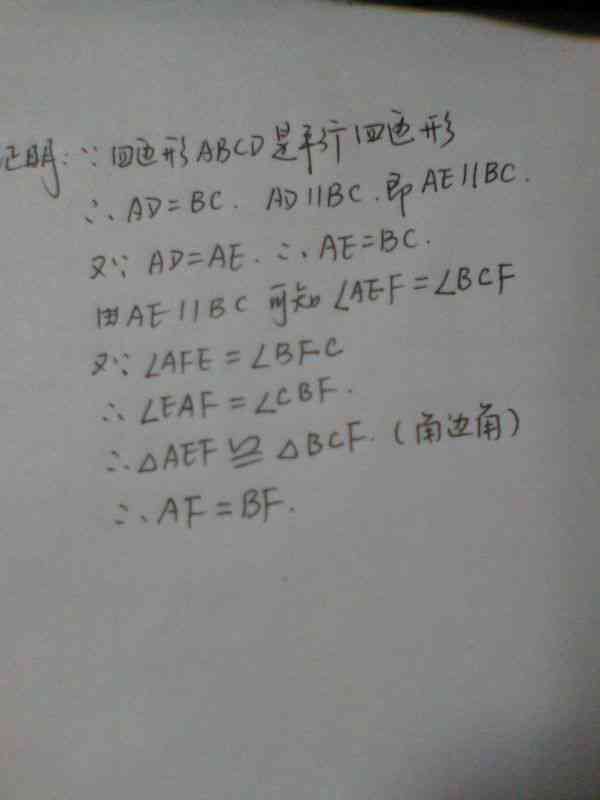 证明:∵四边形ABCD是平行四边形
∴AD=BC. AD∥BC.即AE∥BC.
又∵AD=AE.∴AE=BC.
由AE∥BC可知∠AEF=∠BCF
又∵∠AFE=∠BFC
∴∠EAF=∠CBF.
∴△AEF≌△BCF.(角边角)
∴AF=BF.